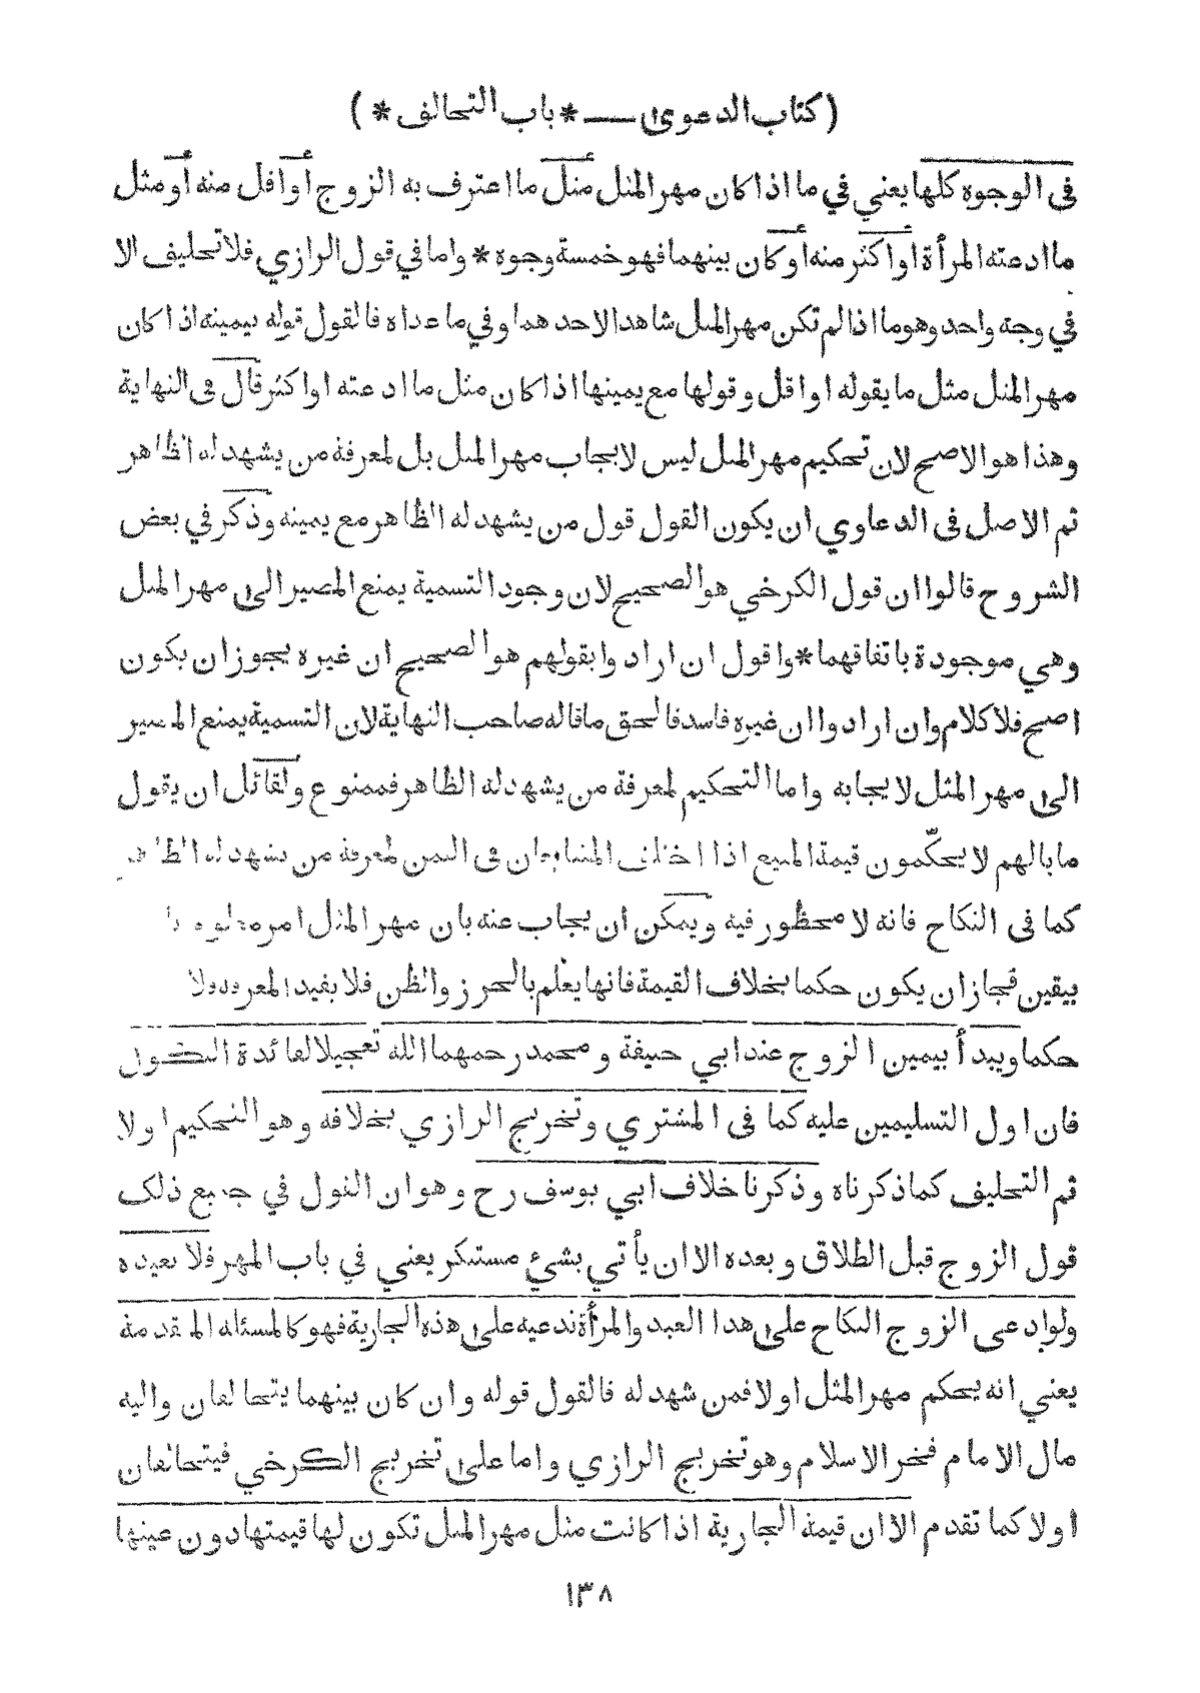 (كتاب الدعوى — * باب التحالف *)
فى الوجوه كلها يعني في ما اذا كان مهر المثل مثل ما اعترف به الزوج او اقل منه او مثل
ما ادعته المرأة او اكثر منه او كان بينهما فهو خمسة وجوه * واما في قول الرازي فلا تحليف الا
في وجه واحد وهو ما اذا لم تكن مهر المثل شاهدا لاحدهما وفي ما عداه فالقول قوله بيمينه اذا كان
مهر المثل مثل ما يقوله او اقل وقولها مع يمينها اذا كان مثل ما ادعته او اكثر قال فى النهاية
وهذا هو الاصح لان تحكيم مهر المثل ليس لايجاب مهر المثل بل لمعرفة من يشهد له الظاهر
ثم الاصل فى الدعاوي ان يكون القول قول من يشهد له الظاهر مع يمينه وذكر في بعض
الشروح قالوا ان قول الكرخي هو الصحيح لان وجود التسمية يمنع المصير الى مهر المثل
وهي موجودة باتفاقهما * واقول ان ارادوا بقولهم هو الصحيح ان غيره يجوز ان يكون
اصح فلا كلام وان ارادوا ان غيره فاسد فالحق ما قاله صاحب النهاية لان التسمية يمنع المصير
الى مهر المثل لايجابه واما التحكيم لمعرفة من يشهد له الظاهر فممنوع ولقائل ان يقول
ما بالهم لا يحكّمون قيمة المبيع اذا اختلف المتبايعان فى الثمن لمعرفة من يشهد له الظاهر
كما فى النكاح فانه لا محظور فيه ويمكن ان يجاب عنه بان مهر المثل امر معلوم
بيقين فجاز ان يكون حكما بخلاف القيمة فانها يعلم بالحرز والظن فلا يفيد المعرفة ولا
حكما ويبدأ بيمين الزوج عند ابي حنيفة ومحمد رحمهما الله تعجيلا لفائدة النكول
فان اول التسليمين عليه كما فى المشتري وتخريج الرازي بخلافه وهو التحكيم اولا
ثم التحليف كما ذكرناه وذكرنا خلاف ابي يوسف رح وهو ان القول في جميع ذلك
قول الزوج قبل الطلاق وبعده الا ان يأتي بشئ مستنكر يعني في باب المهر فلا نعيده
ولو ادعى الزوج النكاح على هذا العبد والمرأة تدعيه على هذه الجارية فهو كالمسئلة المتقدمة
يعني انه يحكم مهر المثل اولا فمن شهد له فالقول قوله وان كان بينهما يتحالفان واليه
مال الامام فخر الاسلام وهو تخريج الرازي واما على تخريج الكرخي فيتحالفان
اولا كما تقدم الا ان قيمة الجارية اذا كانت مثل مهر المثل تكون لها قيمتها دون عينها
١٣٨